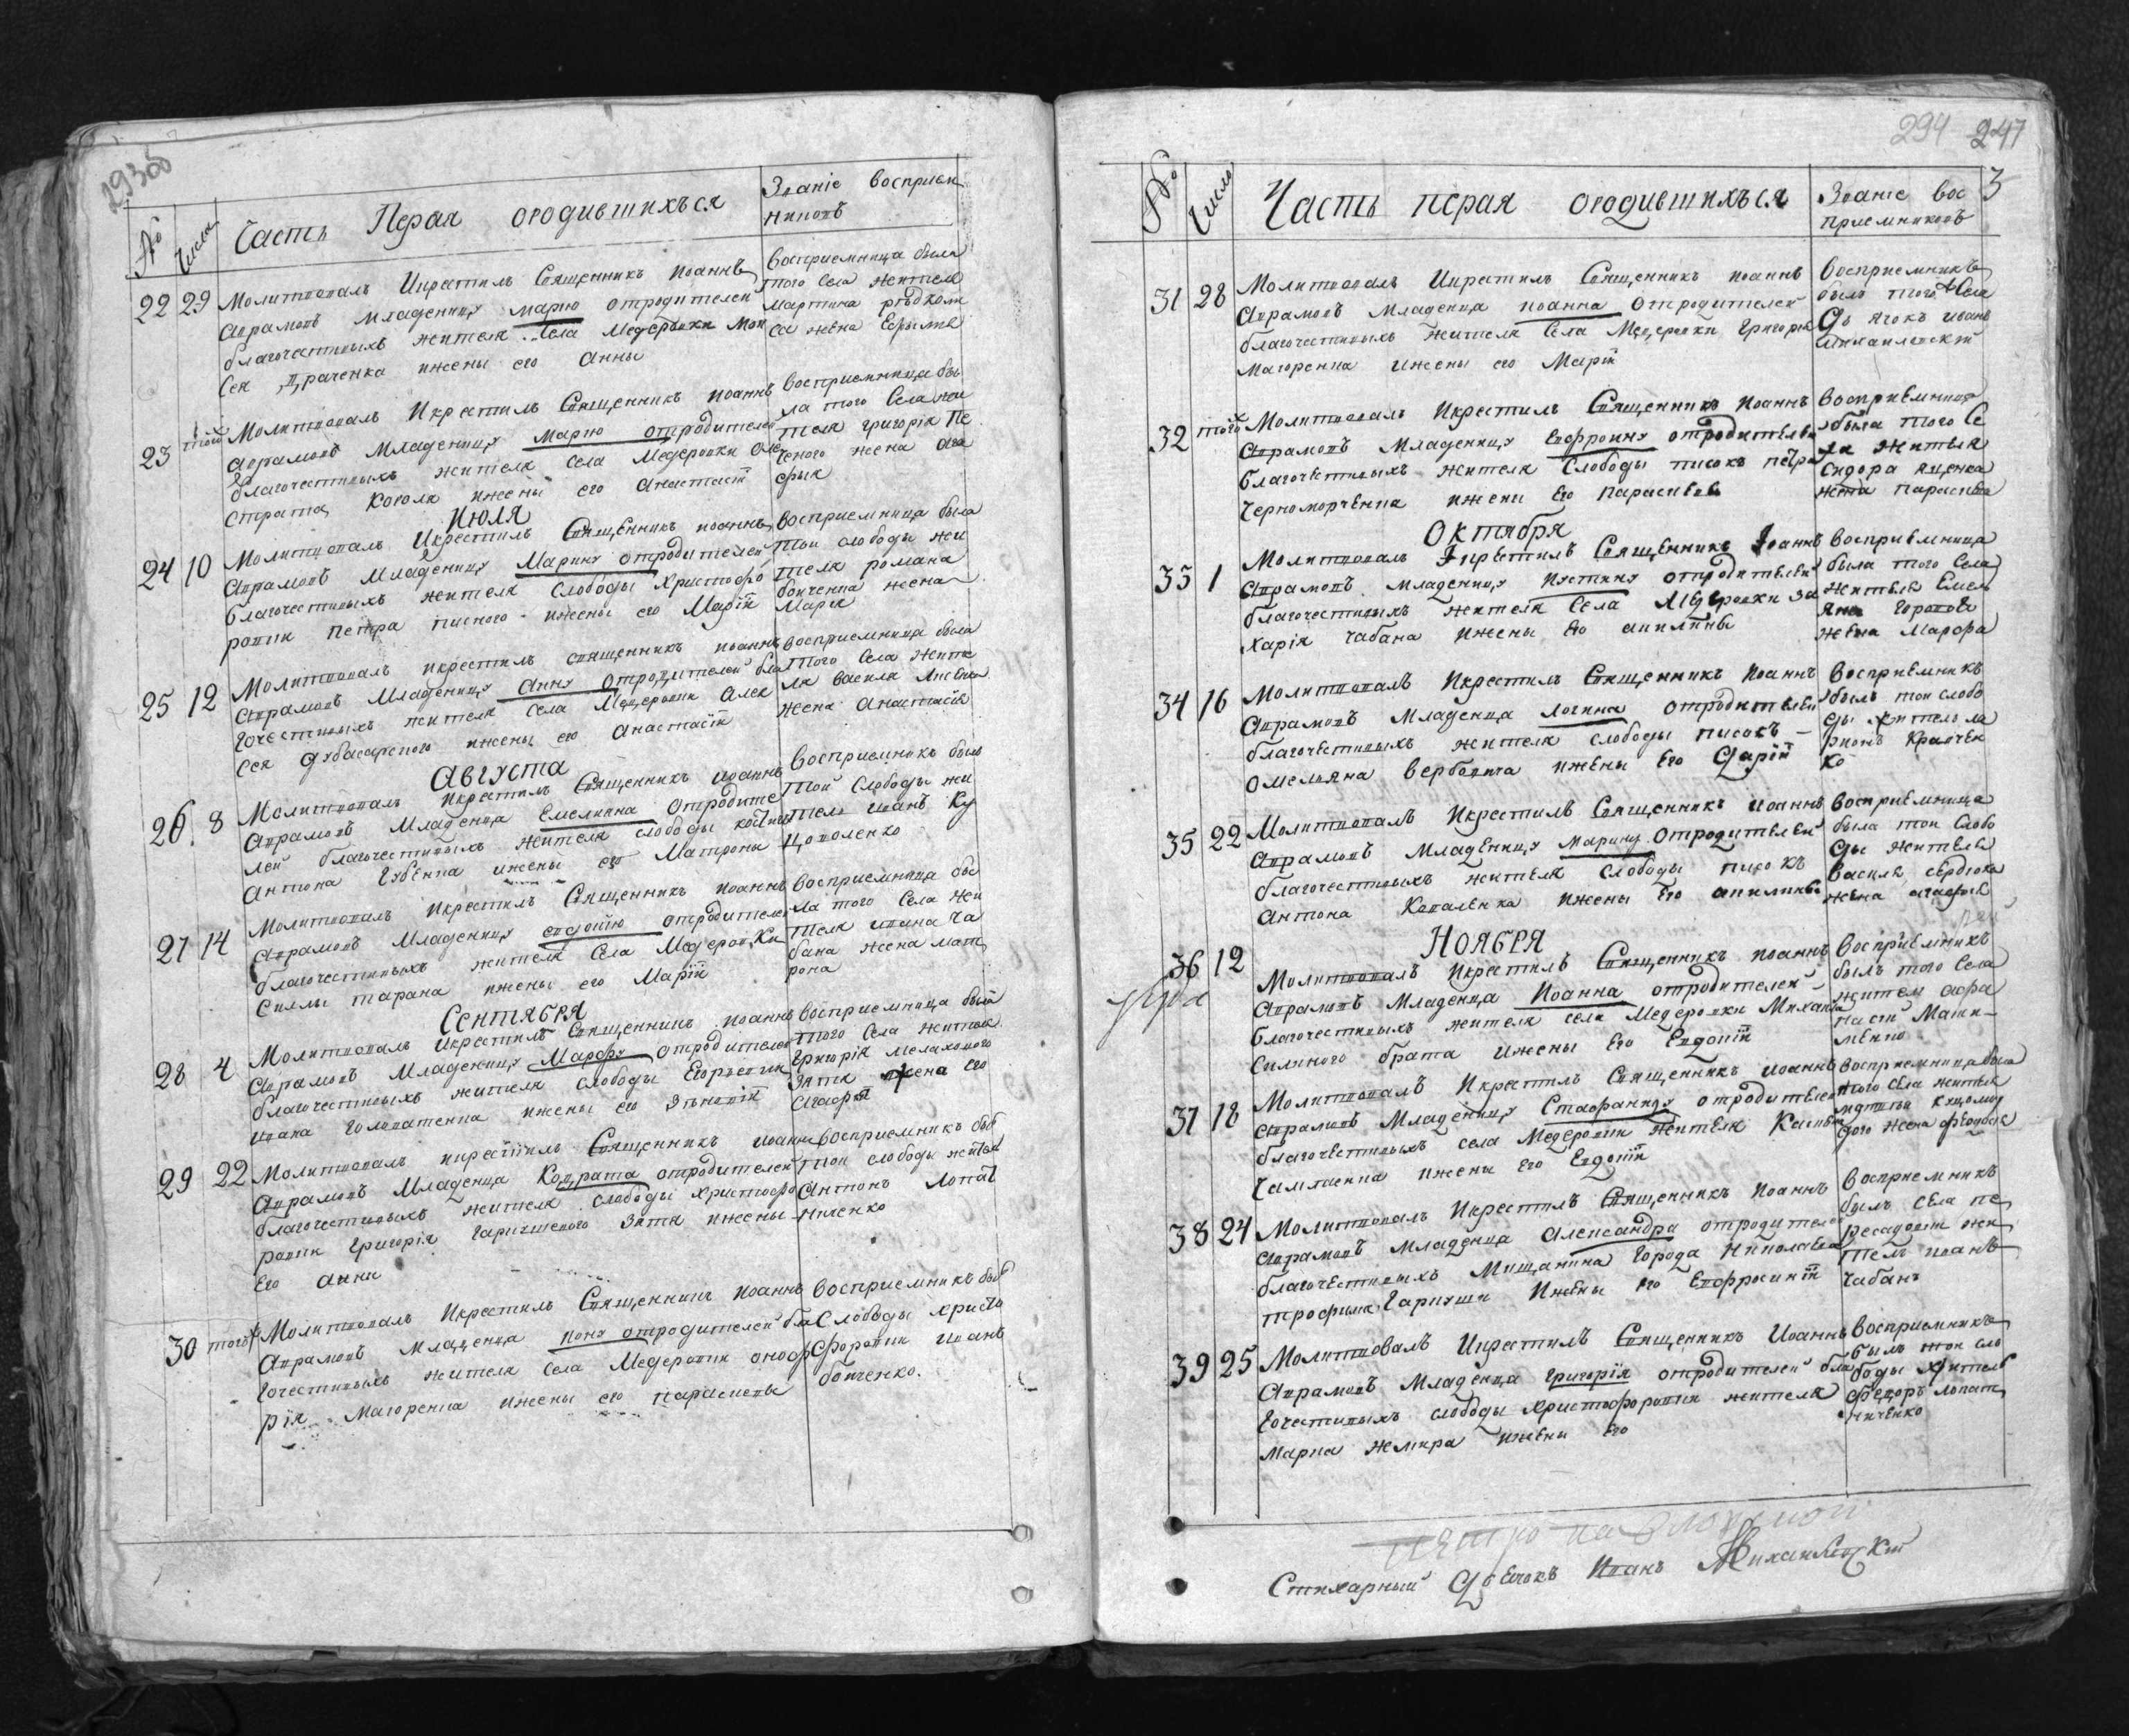 293об
№ Числа Часть Перая ородившихъся Званіе восприем
никовъ
22 29 Молитвовалъ Икрестилъ Священникъ Иоаннъ
Аврамовъ Младеницу марию отродителей
благочестивыхъ жителя Села Медеровки Мои
сея Драченка ижены его Анны
восприемница была
того Села жителя
Мартина
са жена Ефымия
23 того Молитвовалъ Икрестилъ Священникъ Иоаннъ
Аврамовъ Младеницу Марию отродителей
благочестивыхъ жителя Села Медеровки Оли
страта Коголя ижены его Анастасіи
восприемница бы
ла того Села жи
теля григорія Пе
ченого жена Ага
фия
Июля
24 10 Молитвовалъ Икрестилъ Священникъ Иоаннъ
Аврамовъ Младеницу Марину отродителей
благочестивыхъ жителя Слободы Христофо
ровки Петра писного ижены его Маріи
восприемница была
той слободы жи
теля романа
бойченка жена
Марія
25 12 Молитвовалъ икрестилъ священникъ иоаннъ
Аврамовъ Младеницу Анну отродителей бла
гочестивыхъ жителя Села Медеровки Алек
сея дубасарского ижены его Анастасіи
восприемница была
того Села жите
ля василя
жена Анастасія
Августа
26 8 Молитвовалъ Икрестилъ Священникъ Иоаннъ
Аврамовъ Младенца Емелиана отродите
лей благочестивыхъ жителя слободы
Антона Губенка ижены его Матроны
восприемникъ былъ
той Слободы жи
тель иванъ Ку
цоволенко
27 14 Молитвовалъ Икрестилъ Священникъ Иоаннъ
Аврамовъ Младеницу евдокію отродителей
благочестивыхъ жителя Села Медеровки
Силы тарана ижены его Маріи
восприемница бы
ла того Села жи
теля ивана Ча
бана жена мат
рона
Сентября
28 4 Молитвовалъ Икрестилъ Священникъ Иоаннъ
Аврамовъ Младеницу Марфу отродителей
благочестивыхъ жителя слободы Егорьевки
ивана Головатенка ижены его Зѣновіи
восприемница была
того Села жителя
григорія Мелахового
зятя жена его
Агафія
29 22 Молитвовалъ икрестилъ Священникъ иоаннъ
Аврамовъ Младенца Кодрата отродителей
благочестивыхъ жителя слободы христофо
ровки Григорія гаркушеного Зятя ижены
Его Анни
восприемникъ былъ
той слободы житель
Антонъ Лопат
ниченко
30 того Молитвовалъ Икрестилъ Священникъ Иоаннъ
Аврамовъ Младенца иону отродителей бла
гочестивыхъ жителя Села Медеровки оноф
рія Магоренка ижены его параскевы
восприемникъ былъ
Слободы христо
форовки иванъ
бойченко.
294 247
3
№ Число Часть перая ородившихъся Званіе вос
приемниковъ
31 28 Молитвовалъ Икрестилъ Священникъ иоаннъ
Аврамовъ Младенца иоанна отродителей
благочестивыхъ жителя Села Медеровки григорія
Магоренка ижены его Маріи
восприемникъ
былъ того Села
Дьячокъ иванъ
Михаилевскій
32 того Молитвовалъ Икрестилъ Священникъ Иоаннъ
Аврамовъ Младеницу Евфросину отродителей
благочестивыхъ жителя Слободы писокъ петра
Черноморченка ижены его параскевы
восприемница
была того Се
ла жителя
Сидора яценка
жена параскева
Октября
33 1 Молитвовалъ Ікрестилъ Священникъ Іоаннъ
Аврамовъ младеницу Иустину отродителей
благочестивыхъ жителя Села Медеровки за
харія чабана ижены его акилины
восприемница
была того Села
жителя Емел
яна горового
жена Марфа
34 16 Молитвовалъ Икрестилъ Священникъ Иоаннъ
Аврамовъ Младенца логина отродителей
благочестивыхъ жителя слободы писокъ
омеляна вербовта ижены его Даріи
восприемникъ
былъ той слобо
ды житель ла
ріонъ Кравчен
ко
35 22 Молитвовалъ Икрестилъ Священникъ иоаннъ
Аврамовъ Младеницу марину отродителей
благочестивыхъ жителя слободы писокъ
Антона Коваленка ижены его акилины
восприемница
была той слобо
ды жителя
василя сердюка
жена агафія
Ноября
36 12 Молитвовалъ Икрестилъ Священникъ иоаннъ
Аврамовъ Младенца Иоанна отродителей
благочестивыхъ жителя села Медеровки Михаила
Силиного брата ижены его Евдокіи
восприемникъ
былъ того Села
житель афа
насій
37 18 Молитвовалъ Икрестилъ Священникъ иоаннъ
Аврамовъ Младеницу Стефаниду отродителей
благочестивыхъ села Медеровки жителя
ижены его Евдокіи
восприемница была
того села жителя
жена феодосія
38 24 Молитвовалъ Икрестилъ Священникъ Иоаннъ
Аврамовъ Младенца Александра отродителей
благочестивыхъ Мищанина города Николаева
трофима Гаркуши Ижены его Евфросиніи
восприемникъ
былъ села пе
ресадовки жи
тель иванъ
чабанъ
39 25 Молитвовалъ Икрестилъ Священникъ Иоаннъ
Аврамовъ Младенца григорія отродителей бла
гочестивыхъ слободы христофоровки жителя
Марка ижены его
восприемникъ
былъ той сло
боды житель
федоръ лопат
ниченко
Стихарный Дьячокъ Иванъ Михаилевскій